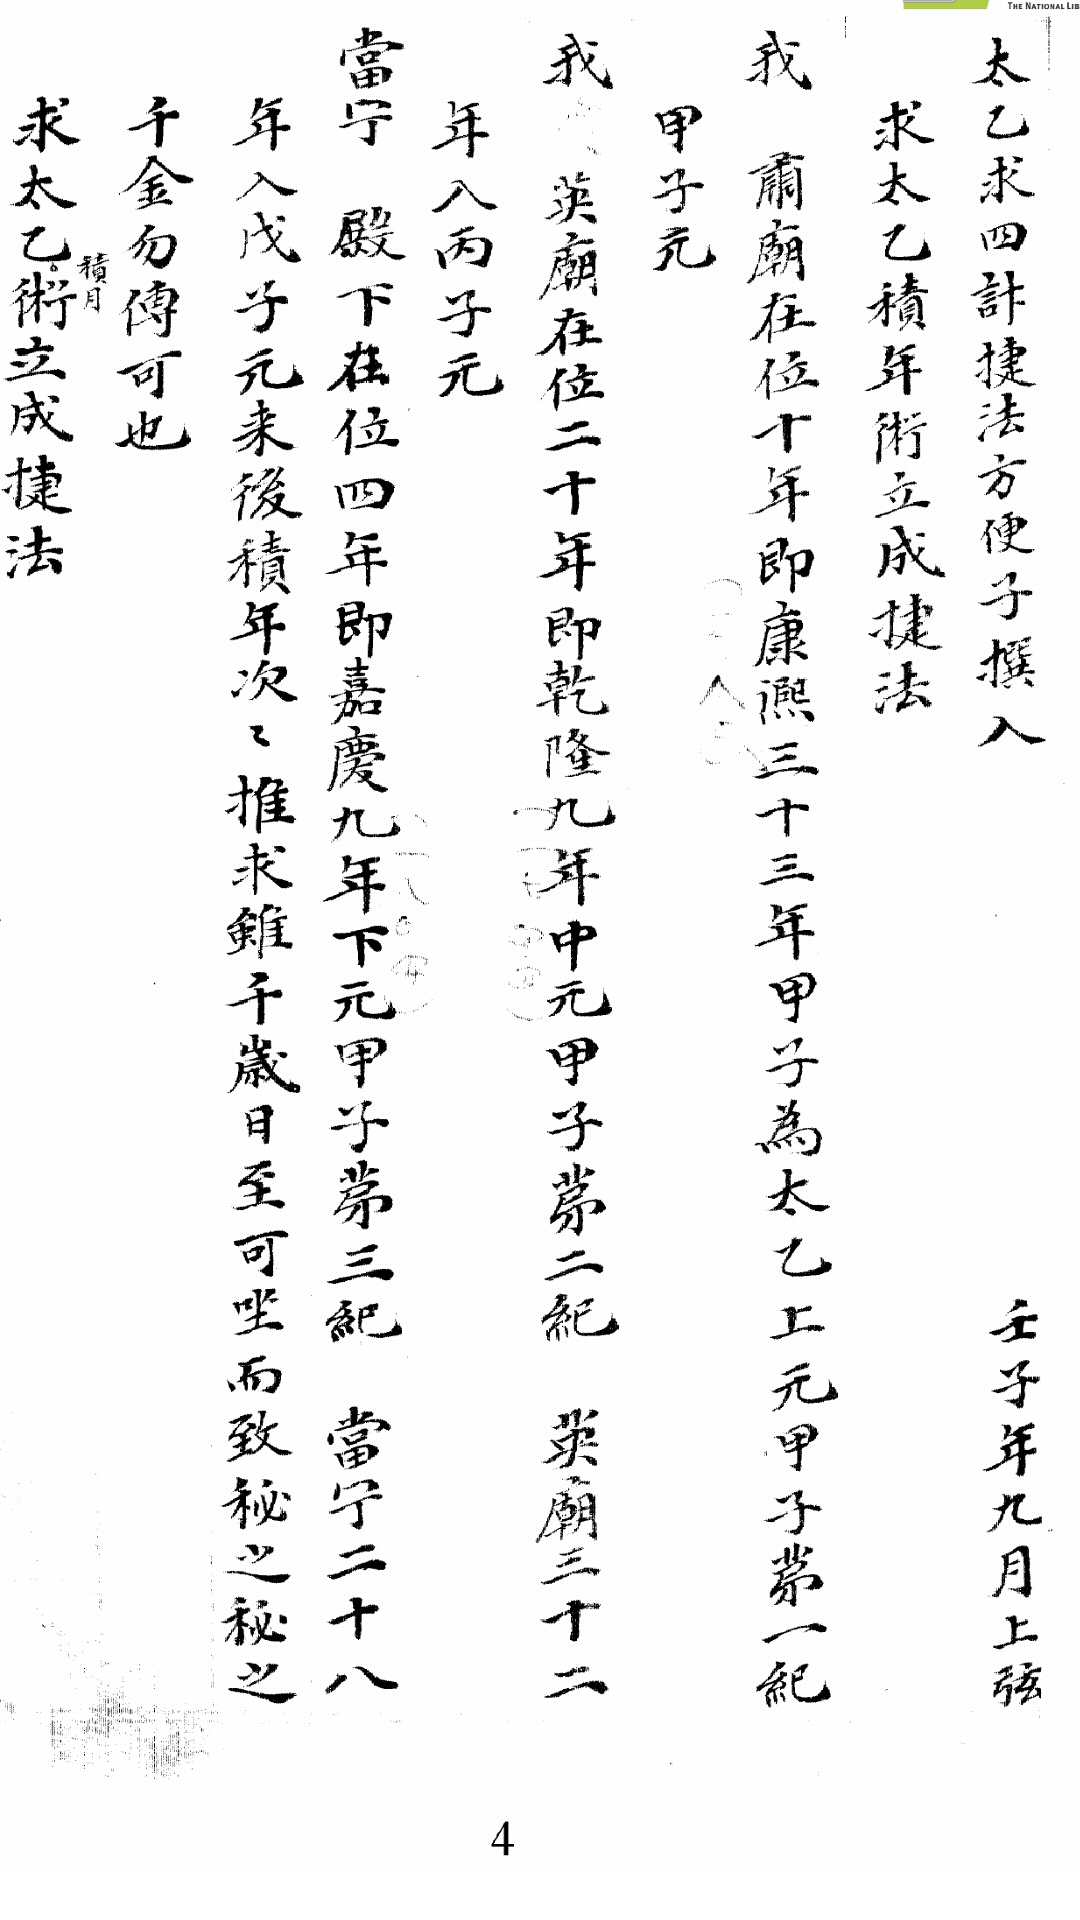 THE NATIONAL LIB
太乙求四計捷法方便子撰入 壬子年九月上弦
求太乙積年術立成捷法
我 肅廟在位十年即康熙三十三年甲子為太乙上元甲子苐一紀
甲子元
我 英廟在位二十年即乾隆九年中元甲子苐二紀 英廟三十二
年入丙子元
當宁 殿下在位四年即嘉慶九年下元甲子苐三紀 當宁二十八
年入戊子元来後積年次〻推求雖千歲日至可坐而致秘之秘之
千金勿傳可也
積月
求太乙術立成捷法
4